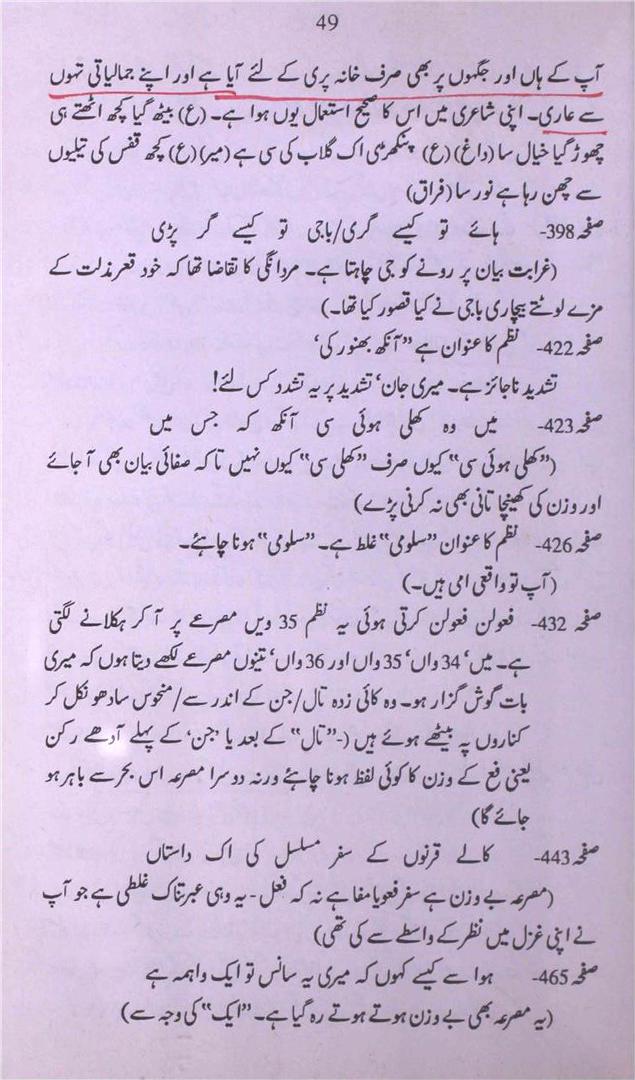 49
آپ کے ہاں اور جگہوں پر بھی صرف خانہ پری کے لئے آیا ہے اور اپنے جمالیاتی تہوں
سے عاری۔ اپنی شاعری میں اس کا صحیح استعمال یوں ہوا ہے۔ (ع) بیٹھ گیا کچھ اٹھتے ہی
چھوڑ گیا خیال سا (داغ) (ع) پنکھڑی اک گلاب کی سی ہے (میر) (ع) کچھ قفس کی تیلیوں
سے چھن رہا ہے نور سا (فراق)
صفحہ 398- ہائے تو کیسے گری/باجی تو کیسے گر پڑی
(غرابت بیان پر رونے کو جی چاہتا ہے۔ مردانگی کا تقاضا تھا کہ خود قعر مذلت کے
مزے لوٹتے بیچاری باجی نے کیا قصور کیا تھا۔)
صفحہ 422- نظم کا عنوان ہے ”آنکھ بھنور کی‘
تشدید ناجائز ہے۔ میری جان‘ تشدید پر یہ تشدد کس لئے!
صفحہ 423- میں وہ کھلی ہوئی سی آنکھ کہ جس میں
(”کھلی ہوئی سی“ کیوں صرف ”کھلی سی“ کیوں نہیں تاکہ صفائی بیان بھی آ جائے
اور وزن کی کھینچا تانی بھی نہ کرنی پڑے)
صفحہ 426- نظم کا عنوان ”سلومی“ غلط ہے۔ ”سلومی“ ہونا چاہئے۔
(آپ تو واقعی امی ہیں۔)
صفحہ 432- فعولن فعولن کرتی ہوئی یہ نظم 35 ویں مصرعے پر آ کر ہکلانے لگتی
ہے۔ میں‘ 34 واں‘ 35 واں اور 36 واں‘ تینوں مصرعے لکھے دیتا ہوں کہ میری
بات گوش گزار ہو۔ وہ کائی زدہ تال/جن کے اندر سے/منحوس سادھو نکل کر
کناروں پہ بیٹھے ہوئے ہیں (-”تال“ کے بعد یا ’جن‘ کے پہلے آدھے رکن
یعنی فع کے وزن کا کوئی لفظ ہونا چاہئے ورنہ دوسرا مصرعہ اس بحر سے باہر ہو
جائے گا)
صفحہ 443- کالے قرنوں کے سفر مسلسل کی اک داستاں
(مصرعہ بے وزن ہے سفر فعو یا مفا ہے نہ کہ فعل - یہ وہی عبرتناک غلطی ہے جو آپ
نے اپنی غزل میں نظر کے واسطے سے کی تھی)
صفحہ 465- ہوا سے کیسے کہوں کہ میری یہ سانس تو ایک واہمہ ہے
(یہ مصرعہ بھی بے وزن ہوتے ہوتے رہ گیا ہے۔ ”ایک“ کی وجہ سے)